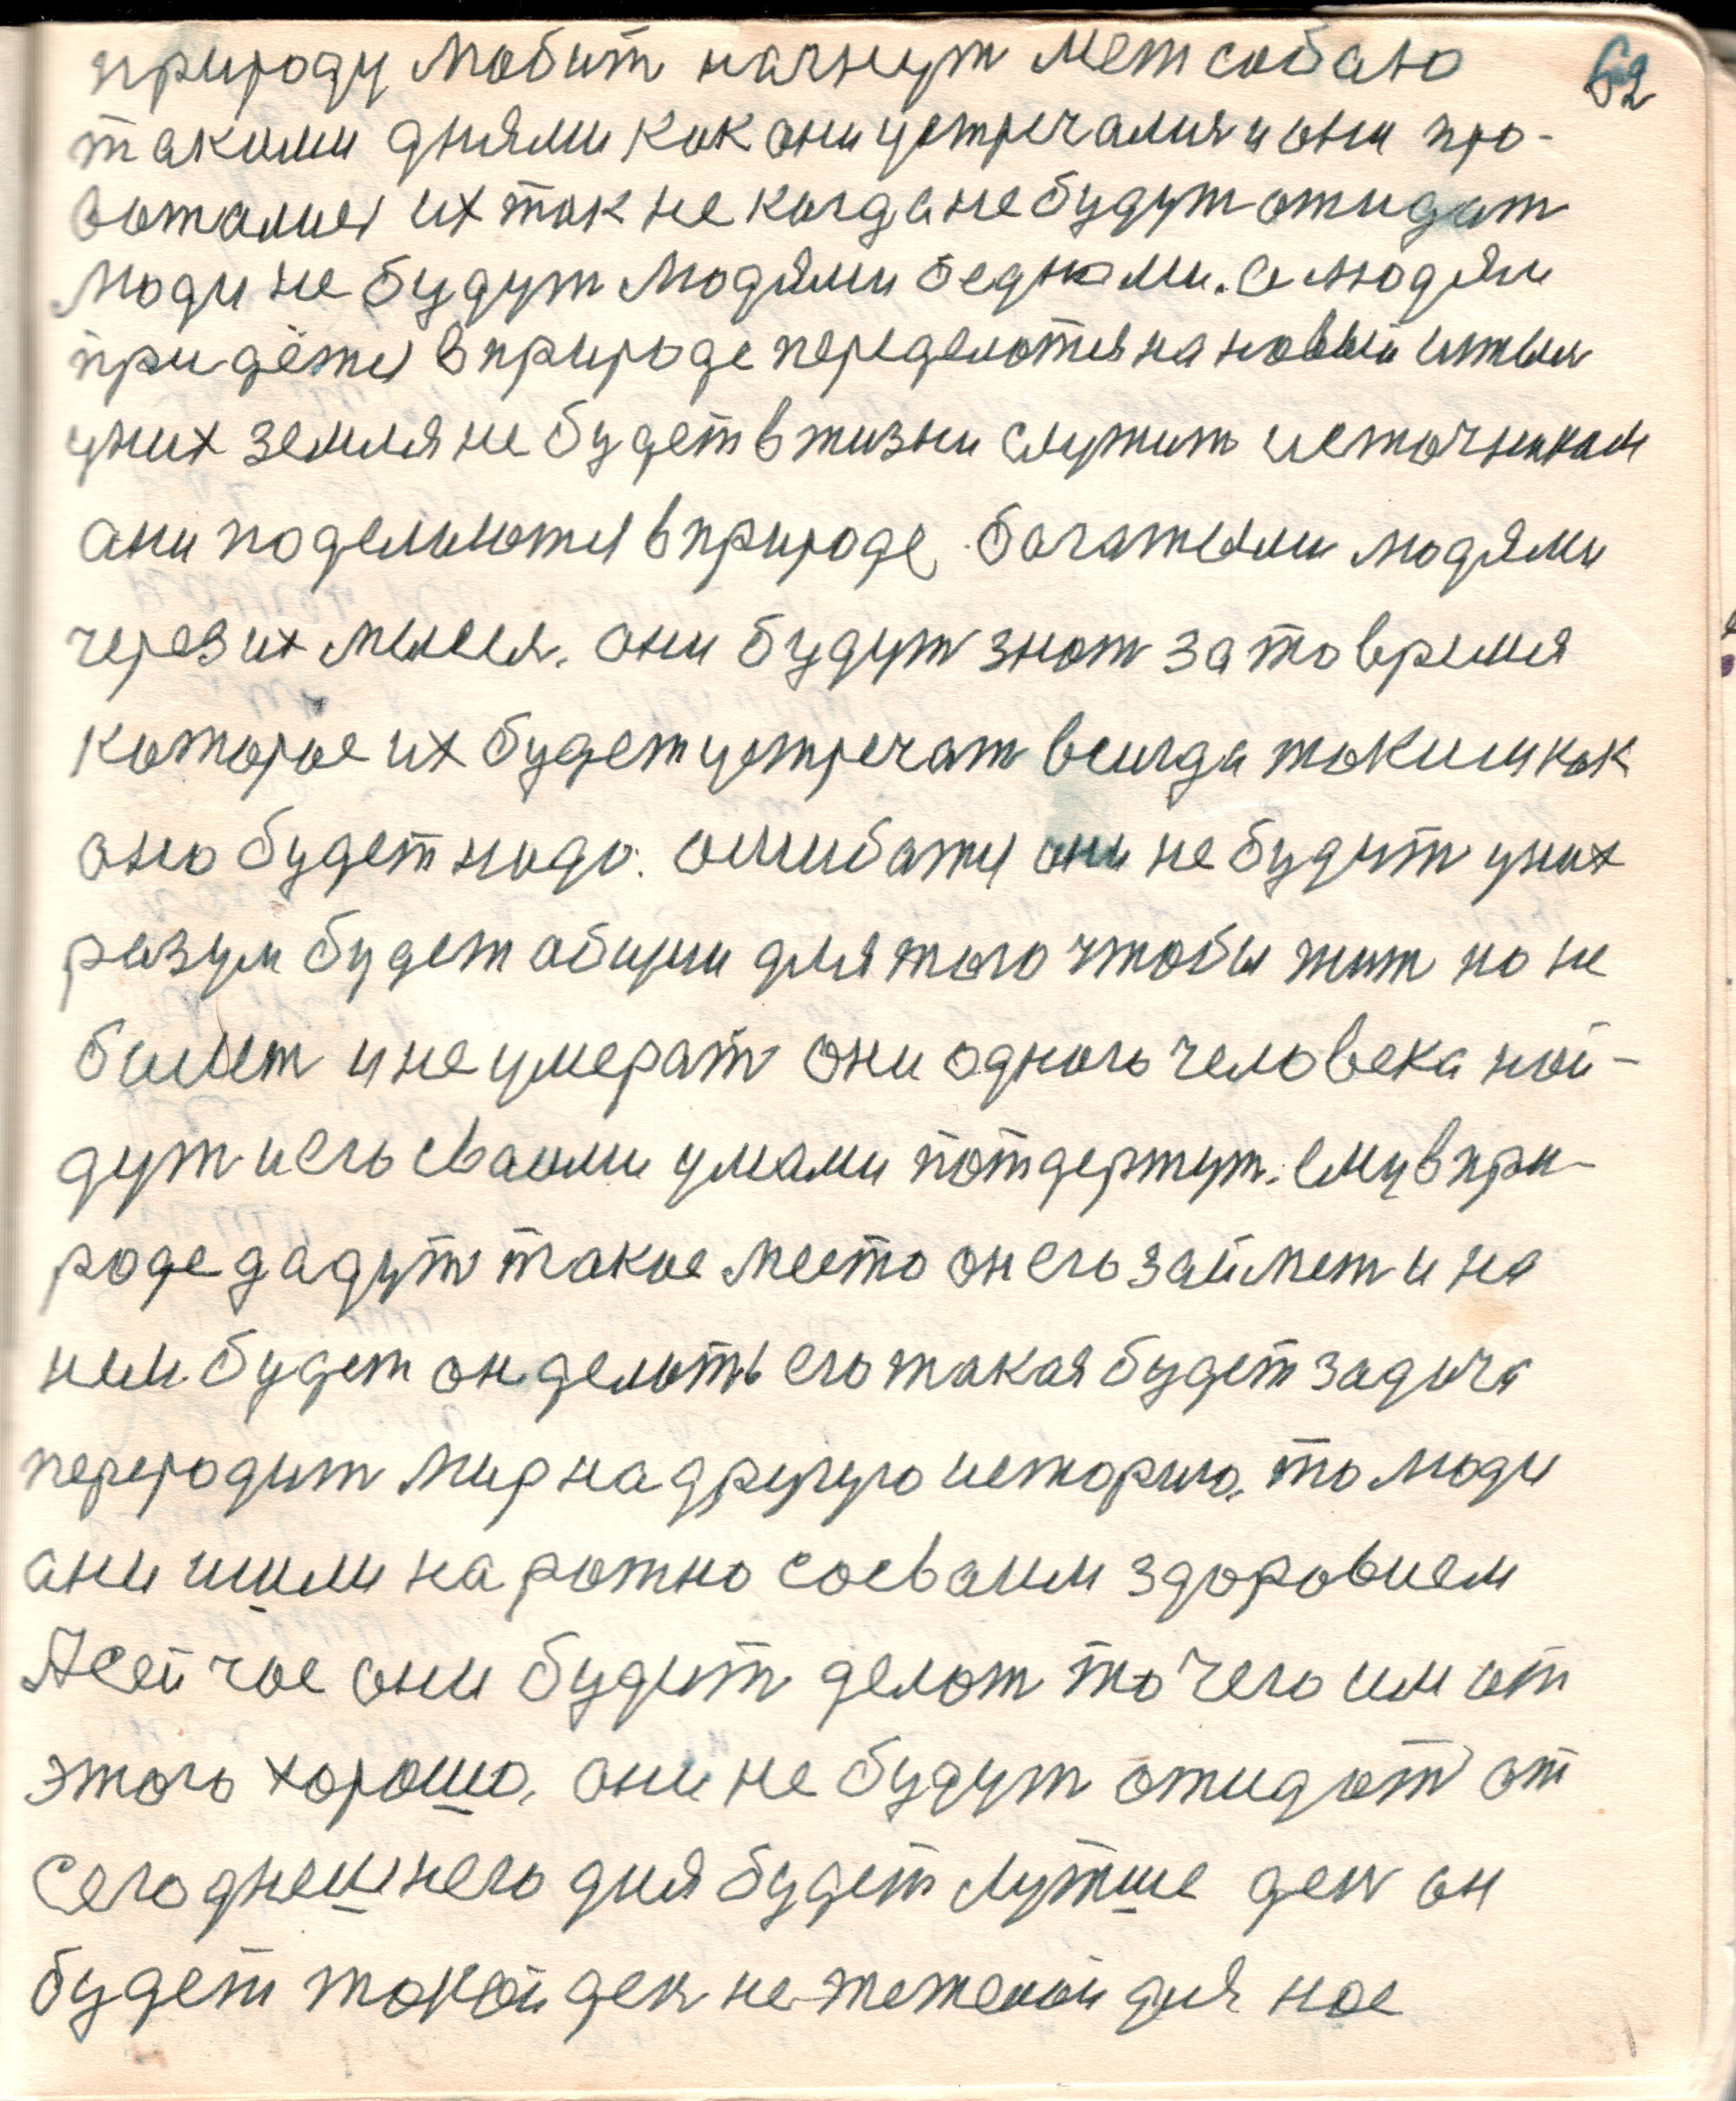 62
природу любит начнут меж собаю
такими днями как они устречалися и они про-
вожалися их так не когда не будут ожидат
люди не будут людями бедными. а людям
придётся в природе переделатся на новый
у них земля не будет в жизни служить источником
ани поделаются в природе богатыми людями
через их мысля. они будут знат за то время
которое их будет устречат всигда таким как
оно будет надо. ошибатся они не будут у них
разум будет общий для того чтобы жит но не
болет и не умерат они одного человека най-
дут и его сваими умами потдержут. ему в при-
роде дадут такое место он его займет и на
ним будет он делоть его такая будет задача
переродит мир на другую историю. то люди
ани шили на ротно со сваим здоровием
А сейчас они будут делат то чего им от
этого хорошо. они не будут ожидат от
сегоднешнего дня будет лутше ден он
будет такой ден не тежелый для нас